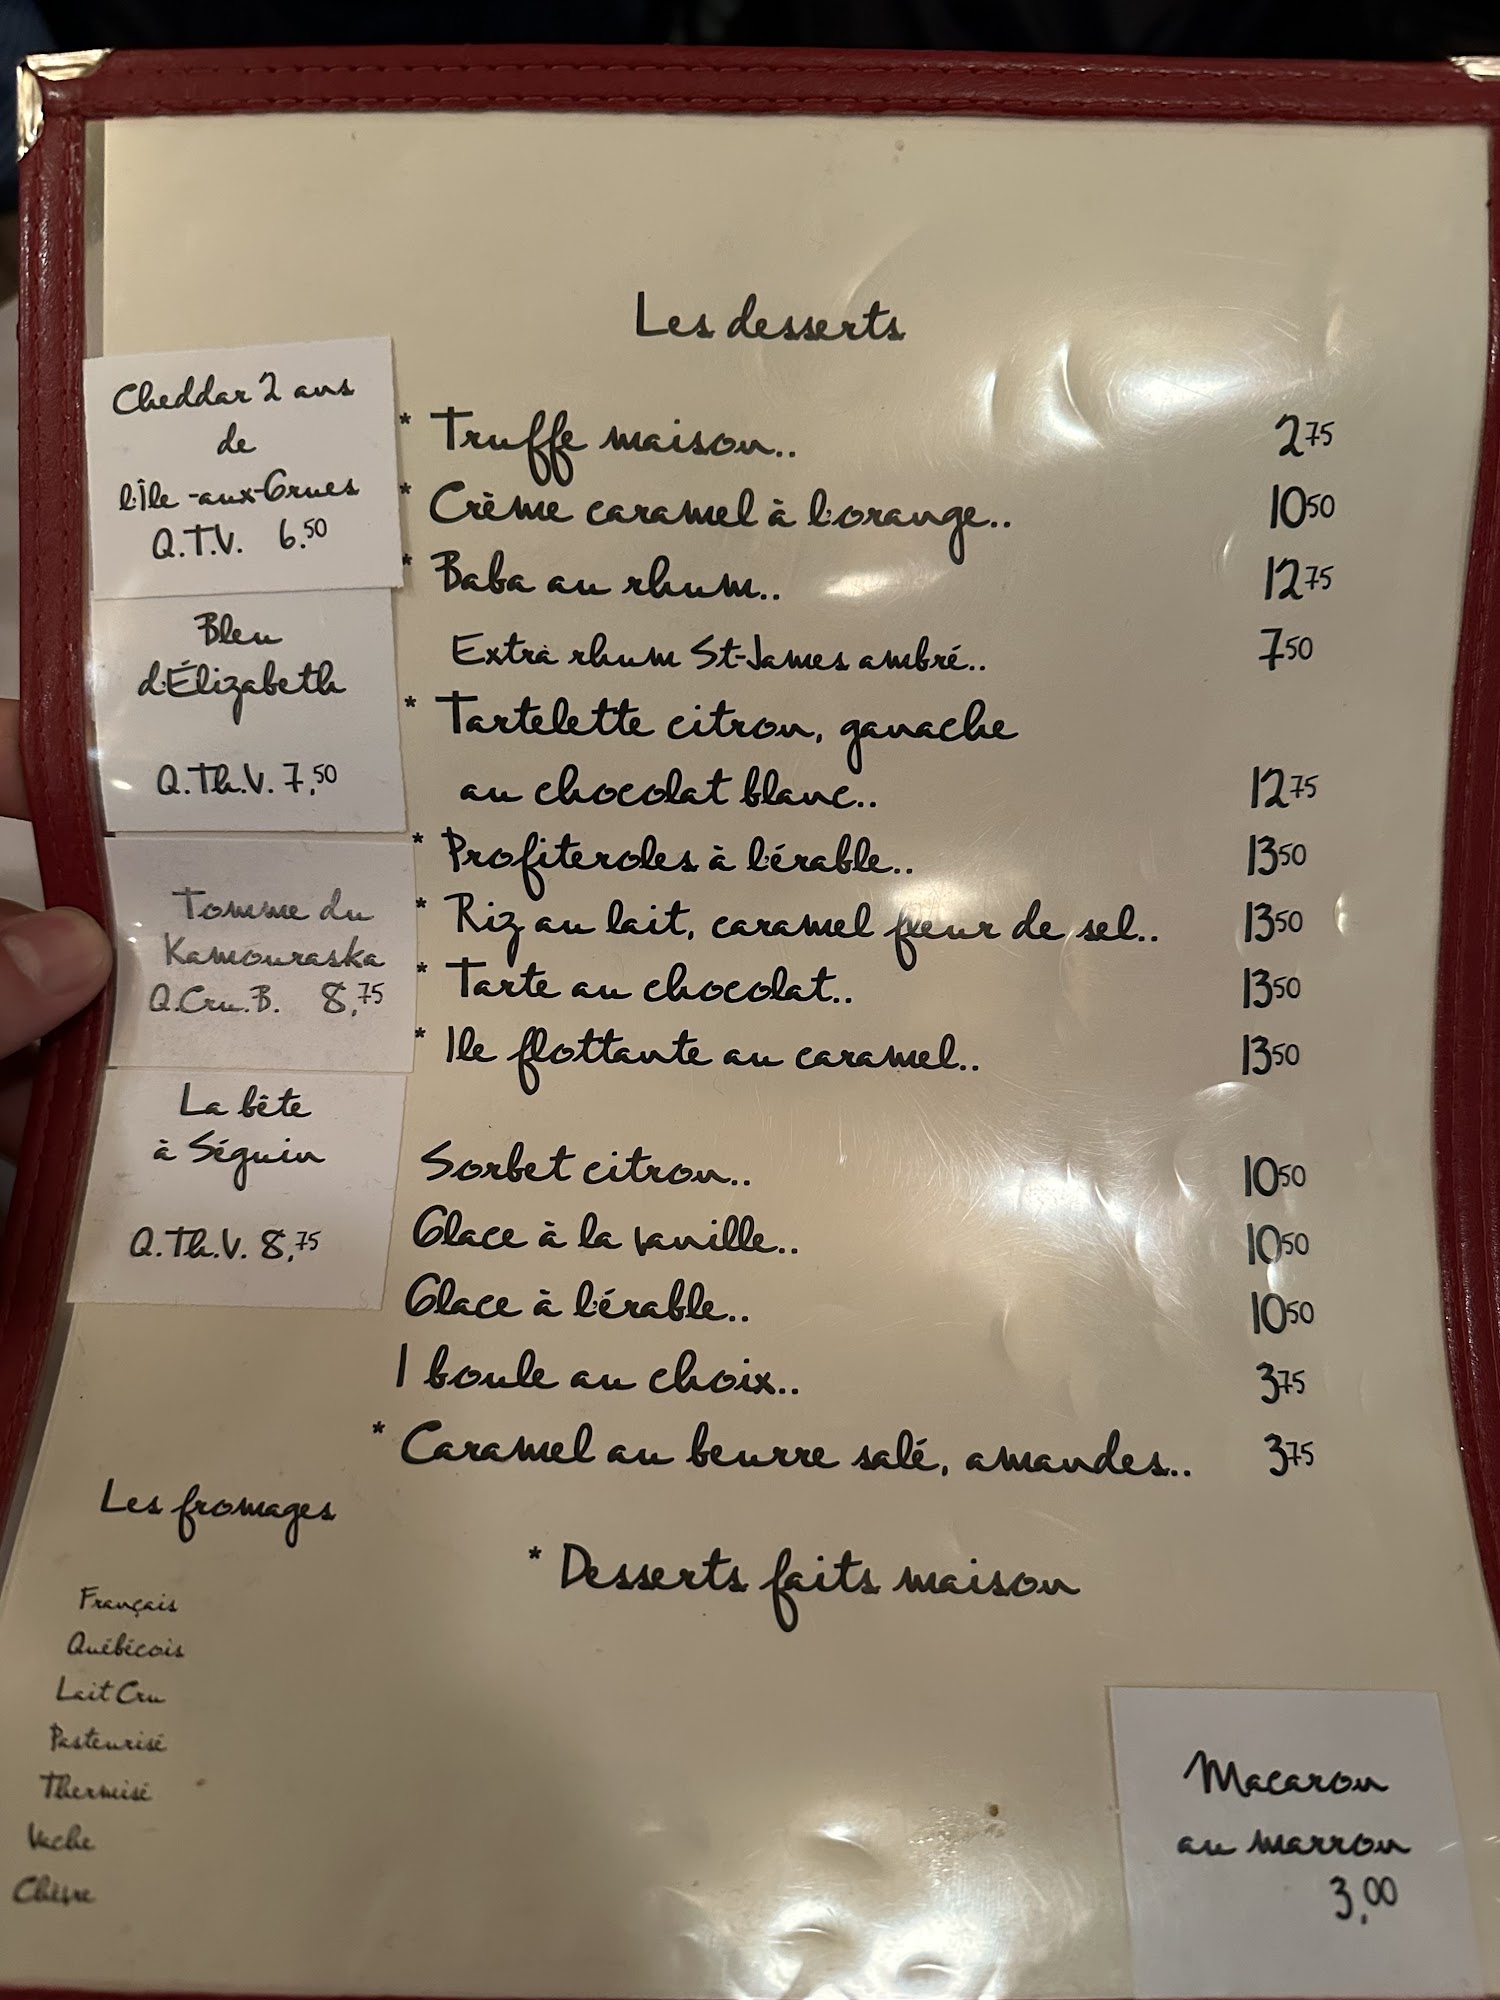 Les desserts
* Truffe maison.. 2 75
* Crème caramel à l'orange.. 10 50
* Baba au rhum.. 12 75
Extra rhum St-James ambré.. 7 50
* Tartelette citron, ganache
au chocolat blanc.. 12 75
* Profiteroles à l'érable.. 13 50
* Riz au lait, caramel fleur de sel.. 13 50
* Tarte au chocolat.. 13 50
* Ile flottante au caramel.. 13 50
Sorbet citron.. 10 50
Glace à la vanille.. 10 50
Glace à l'érable.. 10 50
1 boule au choix.. 3 75
* Caramel au beurre salé, amandes.. 3 75
* Desserts faits maison
Cheddar 2 ans
de
l'Île-aux-Grues
Q.T.V. 6.50
Bleu
d'Élizabeth
Q.Th.V. 7,50
Tomme du
Kamouraska
Q.Cru.B. 8,75
La bête
à Séguin
Q.Th.V. 8,75
Les fromages
Français
Québécois
Lait Cru
Pasteurisé
Thermisé
Vache
Chèvre
Macaron
au marron
3,00